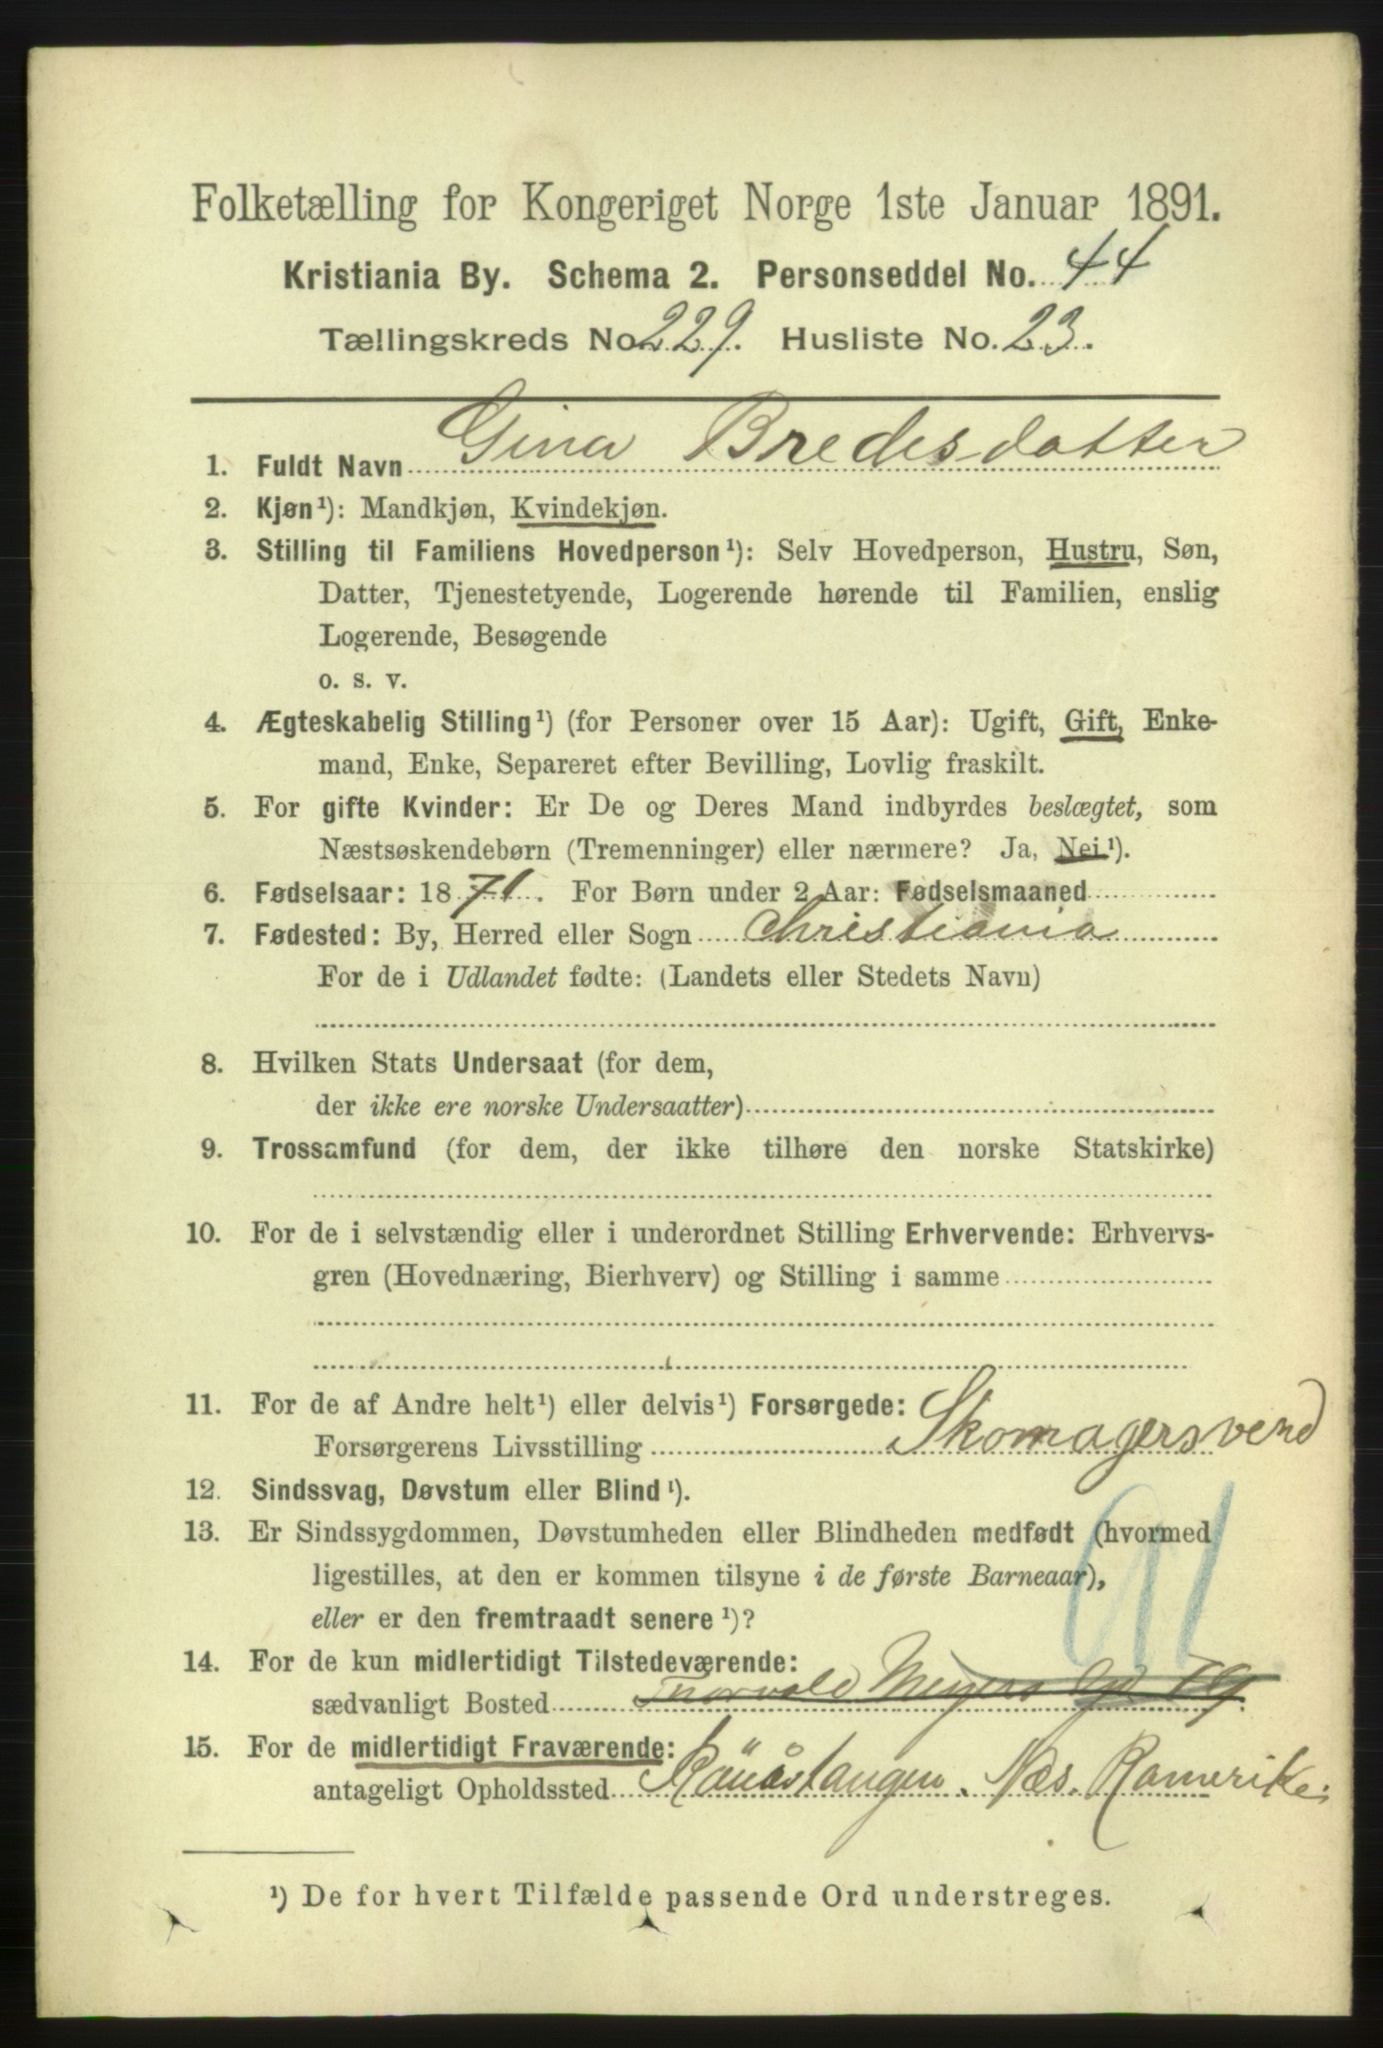 Folketælling for Kongeriget Norge 1ste Januar 1891.
Kristiania By. Schema 2. Personseddel No. 44
Tællingskreds No. 229. Husliste No. 23.
1. Fuldt Navn Gina Bredesdatter
2. Kjøn¹): Mandkjøn, Kvindekjøn.
3. Stilling til Familiens Hovedperson¹): Selv Hovedperson, Hustru, Søn,
Datter, Tjenestetyende, Logerende hørende til Familien, enslig
Logerende, Besøgende
o. s. v.
4. Ægteskabelig Stilling¹) (for Personer over 15 Aar): Ugift, Gift, Enke-
mand, Enke, Separeret efter Bevilling, Lovlig fraskilt.
5. For gifte Kvinder: Er De og Deres Mand indbyrdes beslægtet, som
Næstsøskendebørn (Tremenninger) eller nærmere? Ja, Nei¹).
6. Fødselsaar: 1871. For Børn under 2 Aar: Fødselsmaaned
7. Fødested: By, Herred eller Sogn Christiania
For de i Udlandet fødte: (Landets eller Stedets Navn)
8. Hvilken Stats Undersaat (for dem,
der ikke ere norske Undersaatter)
9. Trossamfund (for dem, der ikke tilhøre den norske Statskirke)
10. For de i selvstændig eller i underordnet Stilling Erhvervende: Erhvervs-
gren (Hovednæring, Bierhverv) og Stilling i samme
11. For de af Andre helt¹) eller delvis¹) Forsørgede:
Forsørgerens Livsstilling Skomagersvend
12. Sindssvag, Døvstum eller Blind¹).
13. Er Sindssygdommen, Døvstumheden eller Blindheden medfødt (hvormed
ligestilles, at den er kommen tilsyne i de første Barneaar),
eller er den fremtraadt senere¹)?
14. For de kun midlertidigt Tilstedeværende:
sædvanligt Bosted Thorvald Meyers Gd 79.
15. For de midlertidigt Fraværende:
antageligt Opholdssted Næs. Romerike.
¹) De for hvert Tilfælde passende Ord understreges.